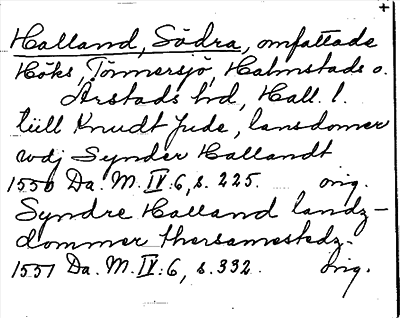 +
Halland, Södra, omfattade
Höks, Tönnersjö, Halmstads o.
Årstads hd, Hall. l.
till Knudt Jude, lansdomer
udj Synder Hallandt
1550 Da. M. IV:6, s. 225. orig.
Syndre Halland landz-
dommer thersamestedz.
1551 Da. M. IV:6, s. 332. orig.